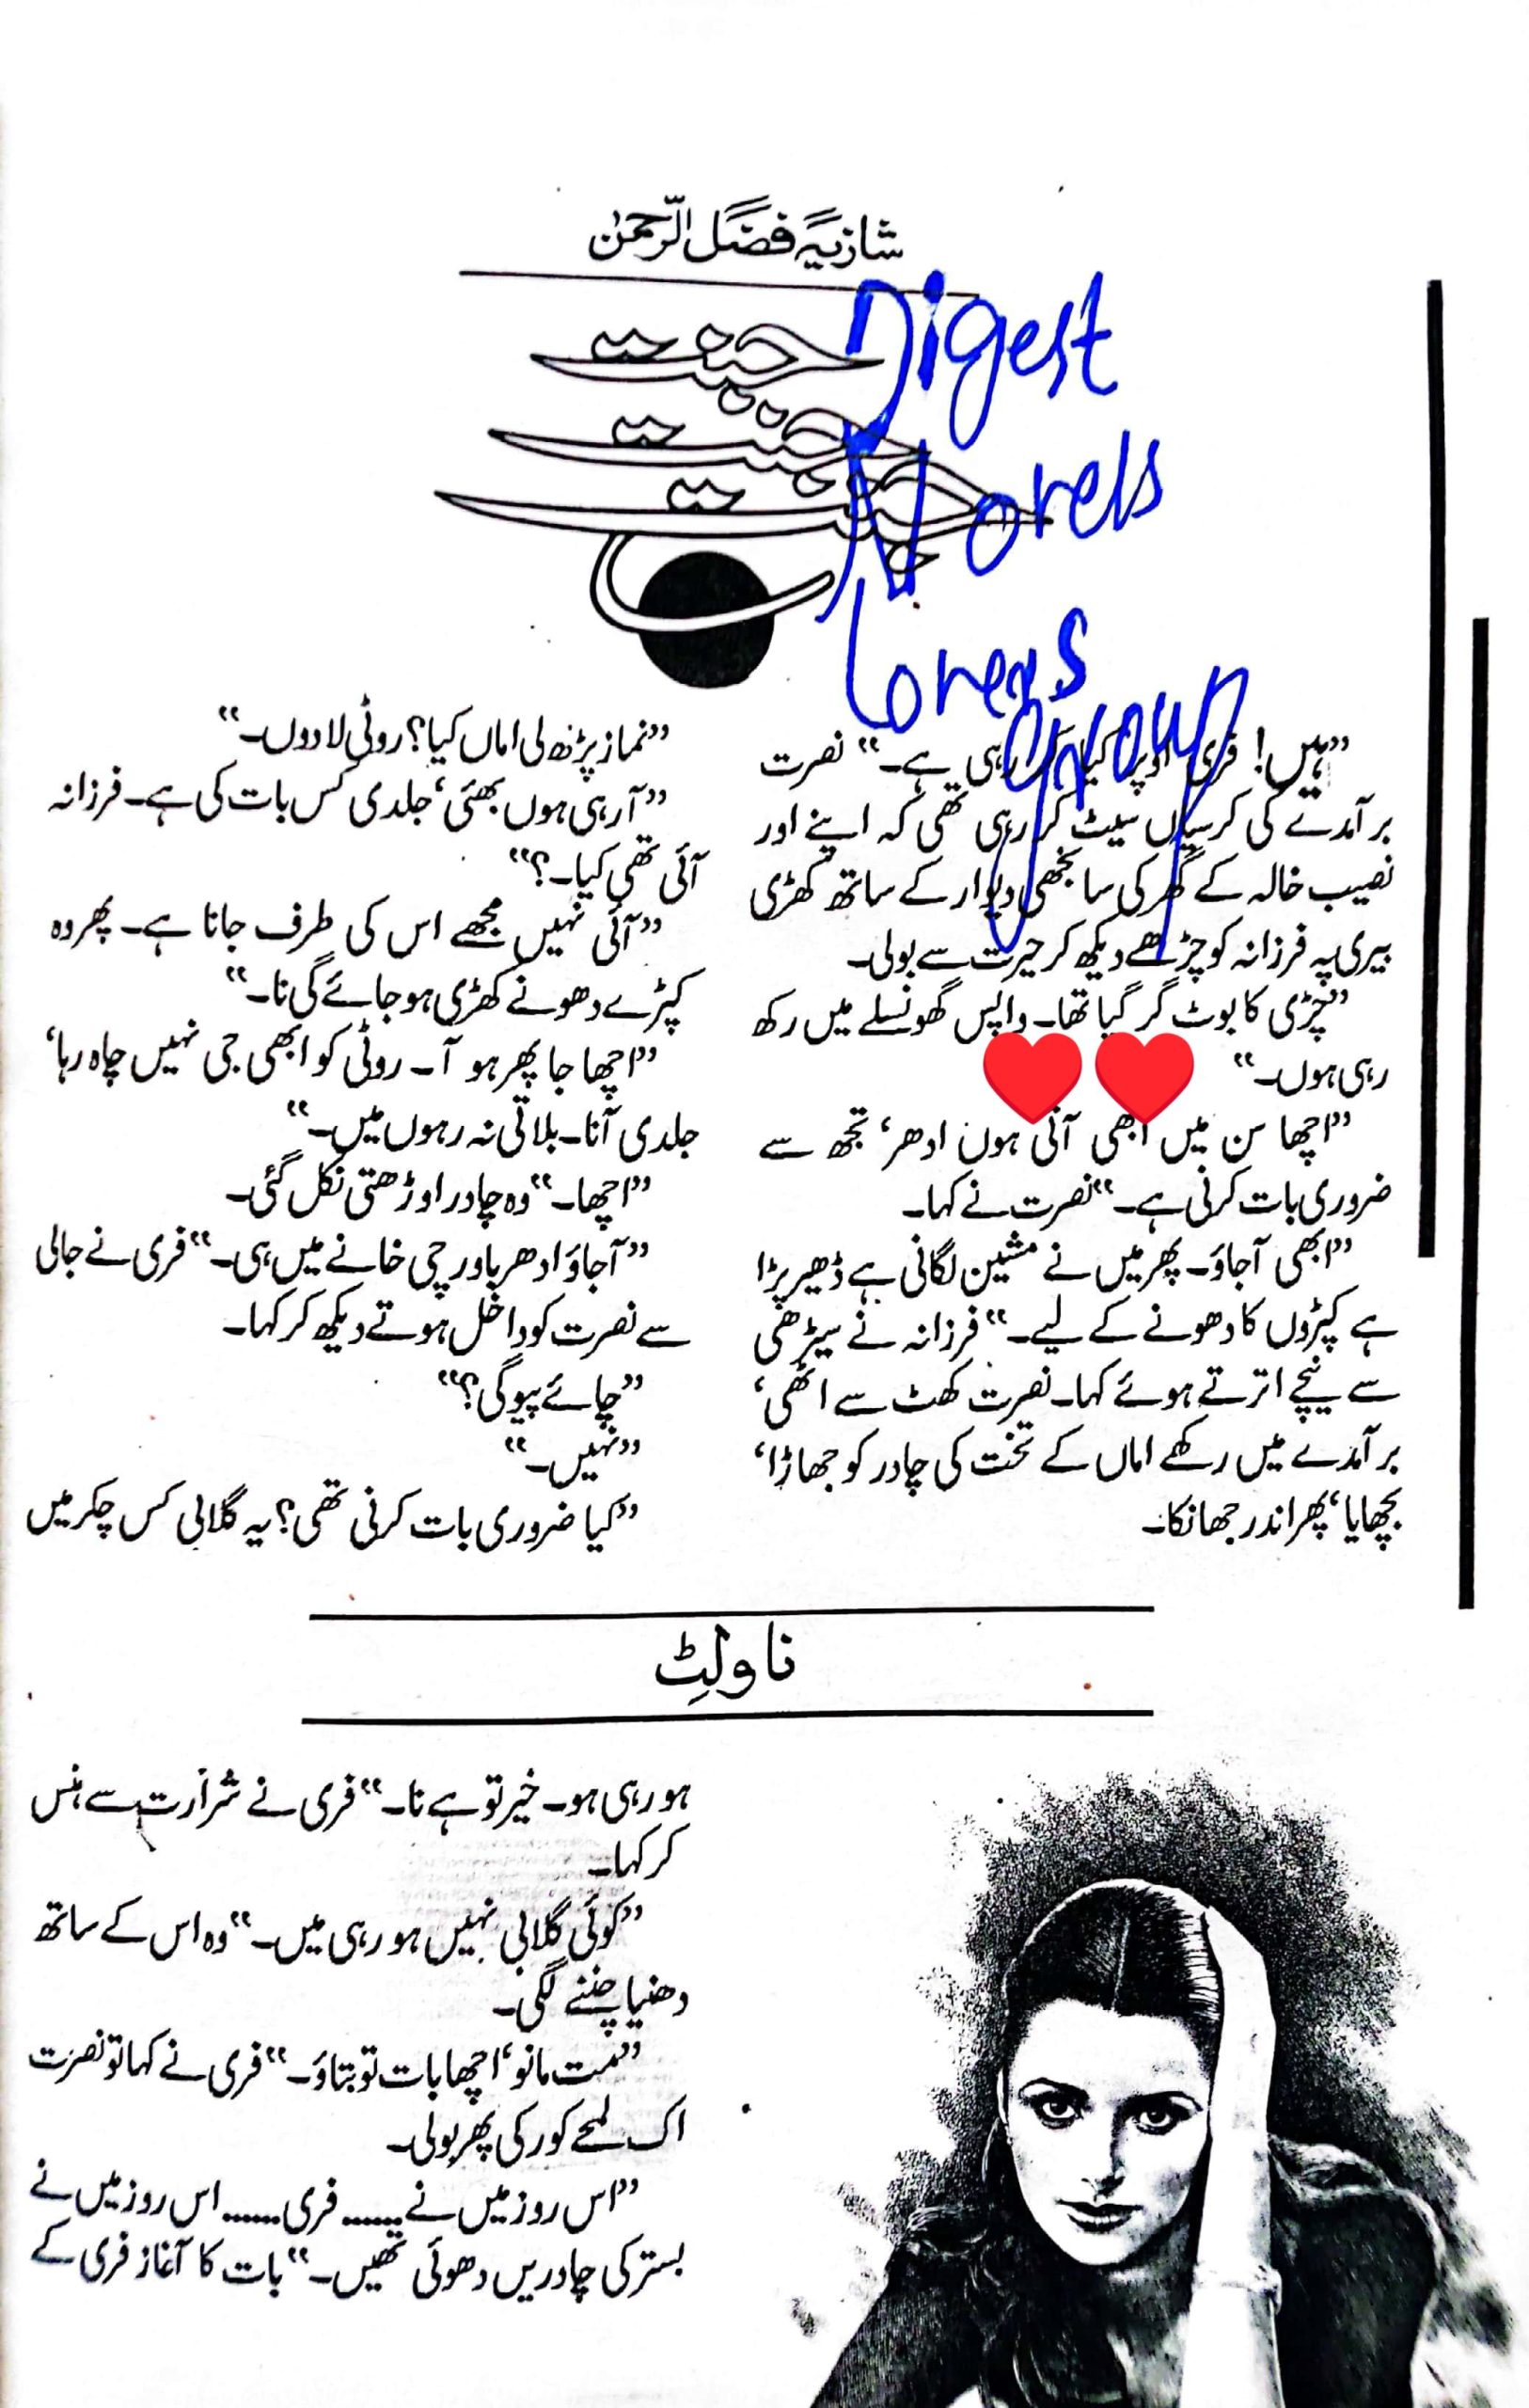 شازیہ فضل الرحمٰن
جنت
جنت
جنت
Digest
Novels
Lovers
group
”ہیں! فری اوپر کیا کر رہی ہے۔“ نصرت
برآمدے کی کرسیاں سیٹ کر رہی تھی کہ اپنے اور
نصیب خالہ کے گھر کی سانجھی دیوار کے ساتھ کھڑی
بیری پہ فرزانہ کو چڑھے دیکھ کر حیرت سے بولی۔
”چڑی کا بوٹ گر گیا تھا۔ واپس گھونسلے میں رکھ
رہی ہوں۔“
”اچھا سن میں ابھی آئی ہوں ادھر، تجھ سے
ضروری بات کرنی ہے۔“ نصرت نے کہا۔
”ابھی آجاؤ۔ پھر میں نے مشین لگانی ہے ڈھیر پڑا
ہے کپڑوں کا دھونے کے لیے۔“ فرزانہ نے سیڑھی
سے نیچے اترتے ہوئے کہا۔ نصرت کھٹ سے اٹھی،
برآمدے میں رکھے اماں کے تخت کی چادر کو جھاڑا،
بچھایا، پھر اندر جھانکا۔
”نماز پڑھ لی اماں کیا؟ روٹی لا دوں۔“
”آرہی ہوں بھئی، جلدی کس بات کی ہے۔ فرزانہ
آئی تھی کیا۔؟“
”آئی نہیں مجھے اس کی طرف جانا ہے۔ پھر وہ
کپڑے دھونے کھڑی ہو جائے گی نا۔“
”اچھا جا پھر ہو آ۔ روٹی کو ابھی جی نہیں چاہ رہا،
جلدی آنا۔ بلاتی نہ رہوں میں۔“
”اچھا۔“ وہ چادر اوڑھتی نکل گئی۔
”آجاؤ ادھر باورچی خانے میں ہی۔“ فری نے جالی
سے نصرت کو داخل ہوتے دیکھ کر کہا۔
”چائے پیو گی؟“
”نہیں۔“
”کیا ضروری بات کرنی تھی؟ یہ گلابی کس چکر میں
ناولٹ
ہو رہی ہو۔ خیر تو ہے نا۔“ فری نے شرارت سے ہنس
کر کہا۔
”کوئی گلابی نہیں ہو رہی میں۔“ وہ اس کے ساتھ
دھنیا چننے لگی۔
”مت مانو، اچھا بات تو بتاؤ۔“ فری نے کہا تو نصرت
اک لمحے کو رکی پھر بولی۔
”اس روز میں نے ...... فری ...... اس روز میں نے
بستر کی چادریں دھوئی تھیں۔“ بات کا آغاز فری کے